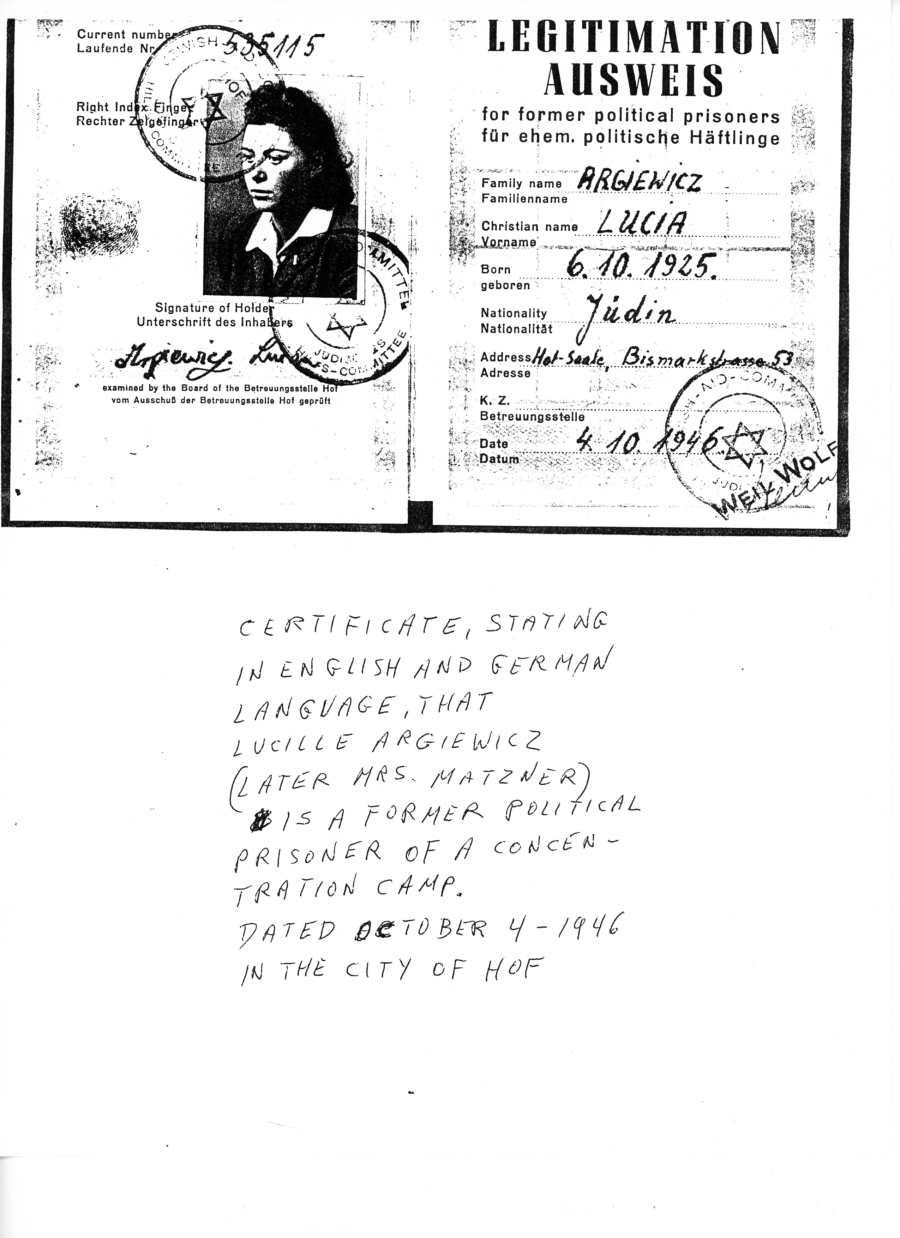 Current number
Laufende Nr. 535115
Right Index Finger
Rechter Zeigefinger
Signature of Holder
Unterschrift des Inhabers
Argiewicz
examined by the Board of the Betreuungsstelle Hof
vom Ausschuß der Betreuungsstelle Hof geprüft
LEGITIMATION
AUSWEIS
for former political prisoners
für ehem. politische Häftlinge
Family name ARGIEWICZ
Familienname
Christian name LUCIA
Vorname
Born 6. 10. 1925.
geboren
Nationality Jüdin
Nationalität
Address Hof-Saale, Bismarkstrasse 53
Adresse
K. Z.
Betreuungsstelle
Date 4. 10. 1946.
Datum
WEIL WOLF
CERTIFICATE, STATING
IN ENGLISH AND GERMAN
LANGUAGE, THAT
LUCILLE ARGIEWICZ
(LATER MRS. MATZNER)
IS A FORMER POLITICAL
PRISONER OF A CONCEN-
TRATION CAMP.
DATED OCTOBER 4-1946
IN THE CITY OF HOF